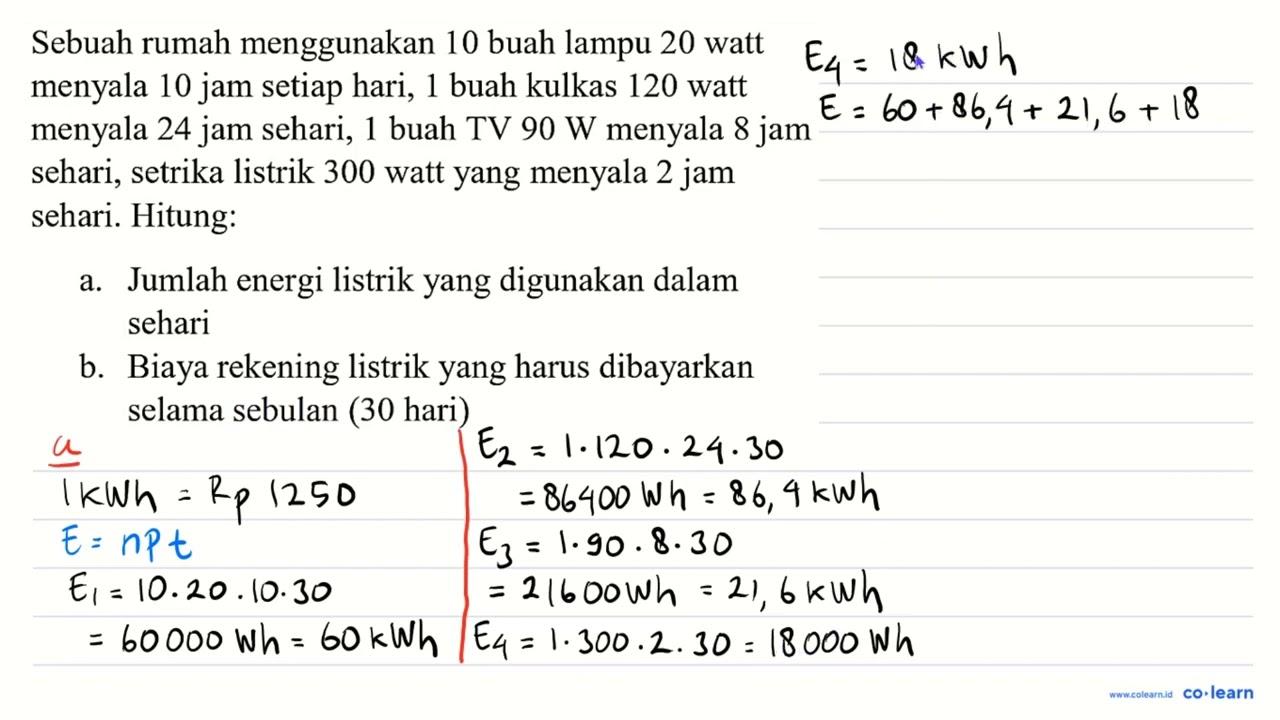 Sebuah rumah menggunakan 10 buah lampu 20 watt
menyala 10 jam setiap hari, 1 buah kulkas 120 watt
menyala 24 jam sehari, 1 buah TV 90 W menyala 8 jam
sehari, setrika listrik 300 watt yang menyala 2 jam
sehari. Hitung:
a. Jumlah energi listrik yang digunakan dalam
sehari
b. Biaya rekening listrik yang harus dibayarkan
selama sebulan (30 hari)
a
1 kWh = Rp 1250
E = npt
E₁ = 10.20.10.30
= 60000 Wh = 60 kWh
E₂ = 1.120.24.30
= 86400 Wh = 86,4 kWh
E₃ = 1.90.8.30
= 21600 Wh = 21,6 kWh
E₄ = 1.300.2.30 = 18000 Wh
E₄ = 18 kWh
E = 60 + 86,4 + 21,6 + 18
www.colearn.id co·learn